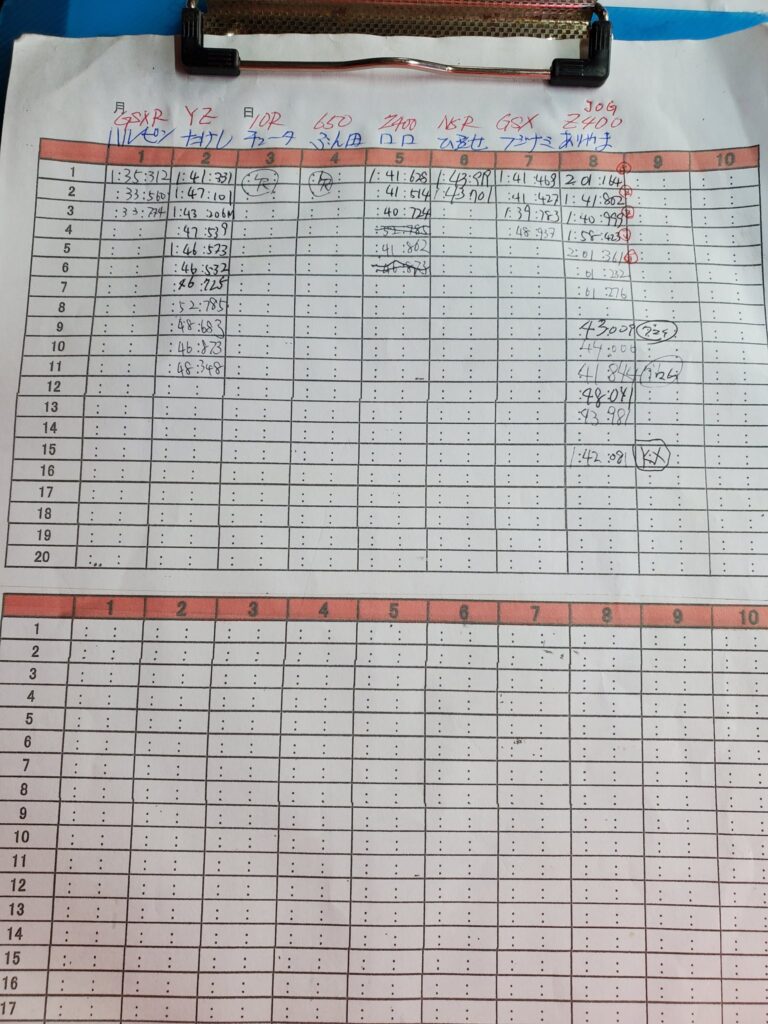 JOG
月 日
GSXR YZ 10R 650 Z400 NSR GSX Z400
ロロ
1 2 3 4 5 6 7 8 9 10
1 1:35:312 1:41:731 1:41:628 1:41:469 2:01:164
2 :33:560 1:47:101 :41:514 1:43:701 :41:427 1:41:802
3 :33:774 1:43 :40:724 1:39:783 1:40:999
4 :47:539 :48:937 1:58:423
5 1:46:573 :41:862 2:01:311
6 :46:532 :46:873 :01:232
7 :46:725 :01:276
8 :52:785
9 :48:683 43:009
10 :46:873 44:000
11 :48:348 41:844
12 :48:041
13 :43:981
14
15 1:42:081 KX
16
17
18
19
20
1 2 3 4 5 6 7 8 9 10
1
2
3
4
5
6
7
8
9
10
11
12
13
14
15
16
17